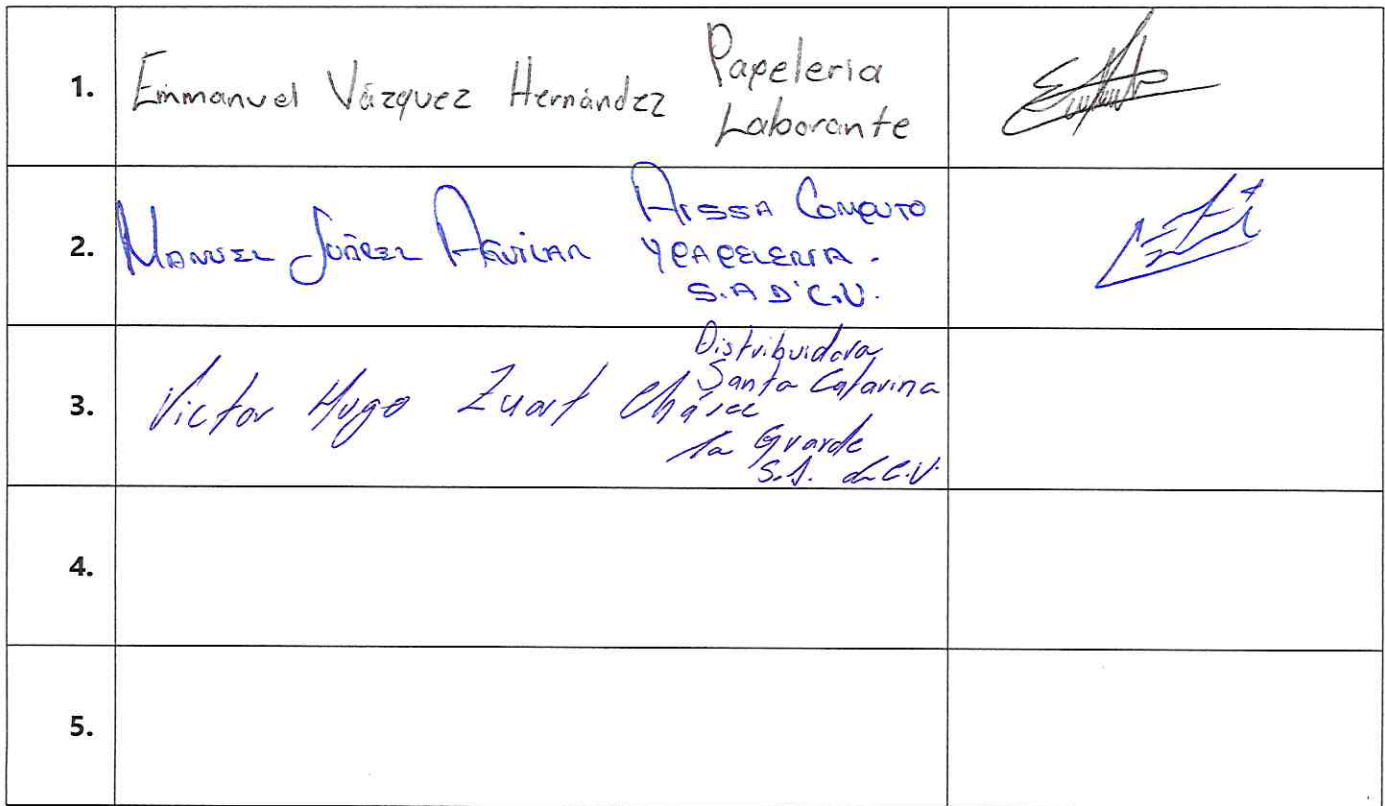 1. Emmanuel Vázquez Hernández Papeleria
Laborante
2. MANUEL AGUILAR AISSA COMPUTO
Y PAPELERIA.
S.A D'C.V.
3. Victor Hugo Zuart Distribuidora
Santa Catarina
la Grande
S.A. de C.V.
4.
5.